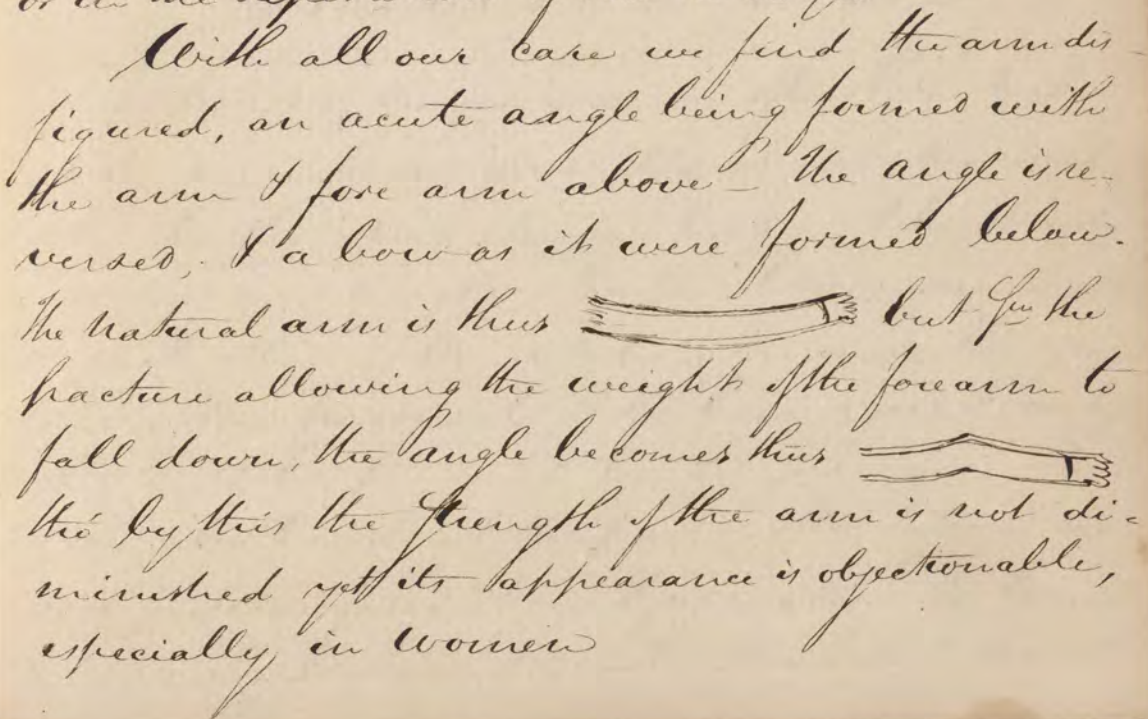 With all our care we find the arm dis-
figured, an acute angle being formed with
the arm & fore arm above – The angle is re-
versed, & a bow as it were formed below.
The natural arm is thus but the
fracture allowing the weight of the forearm to
fall down, the angle becomes thus
tho' by this the strength of the arm is not di=
minished yet its appearance is objectionable,
especially in women